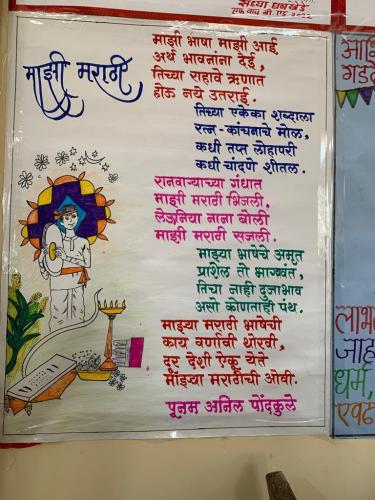 संध्या धनखेडे
माझी मराठी
माझी भाषा माझी आई
अर्थ भावनांना देई,
तिच्या राहावे ऋणात
होऊ नये उतराई.
तिच्या एकेका शब्दाला
रत्न-कांचनाचे मोल,
कधी तप्त लोहापरी
कधी चांदणे शीतल.
रानवाऱ्याच्या गंधात
माझी मराठी भिजली.
लेऊनिया नाना बोली
माझी मराठी सजली.
माझ्या भाषेचे अमृत
प्राशेल तो भाग्यवंत,
तिचा नाही दुजाभाव
असो कोणताही पंथ.
माझ्या मराठी भाषेची
काय वर्णावी थोरवी,
दूर देशी ऐकू येते
माझ्या मराठीची ओवी.
पूनम अनिल पोंदकुले
लाभ
जाह
धर्म,
एवढ